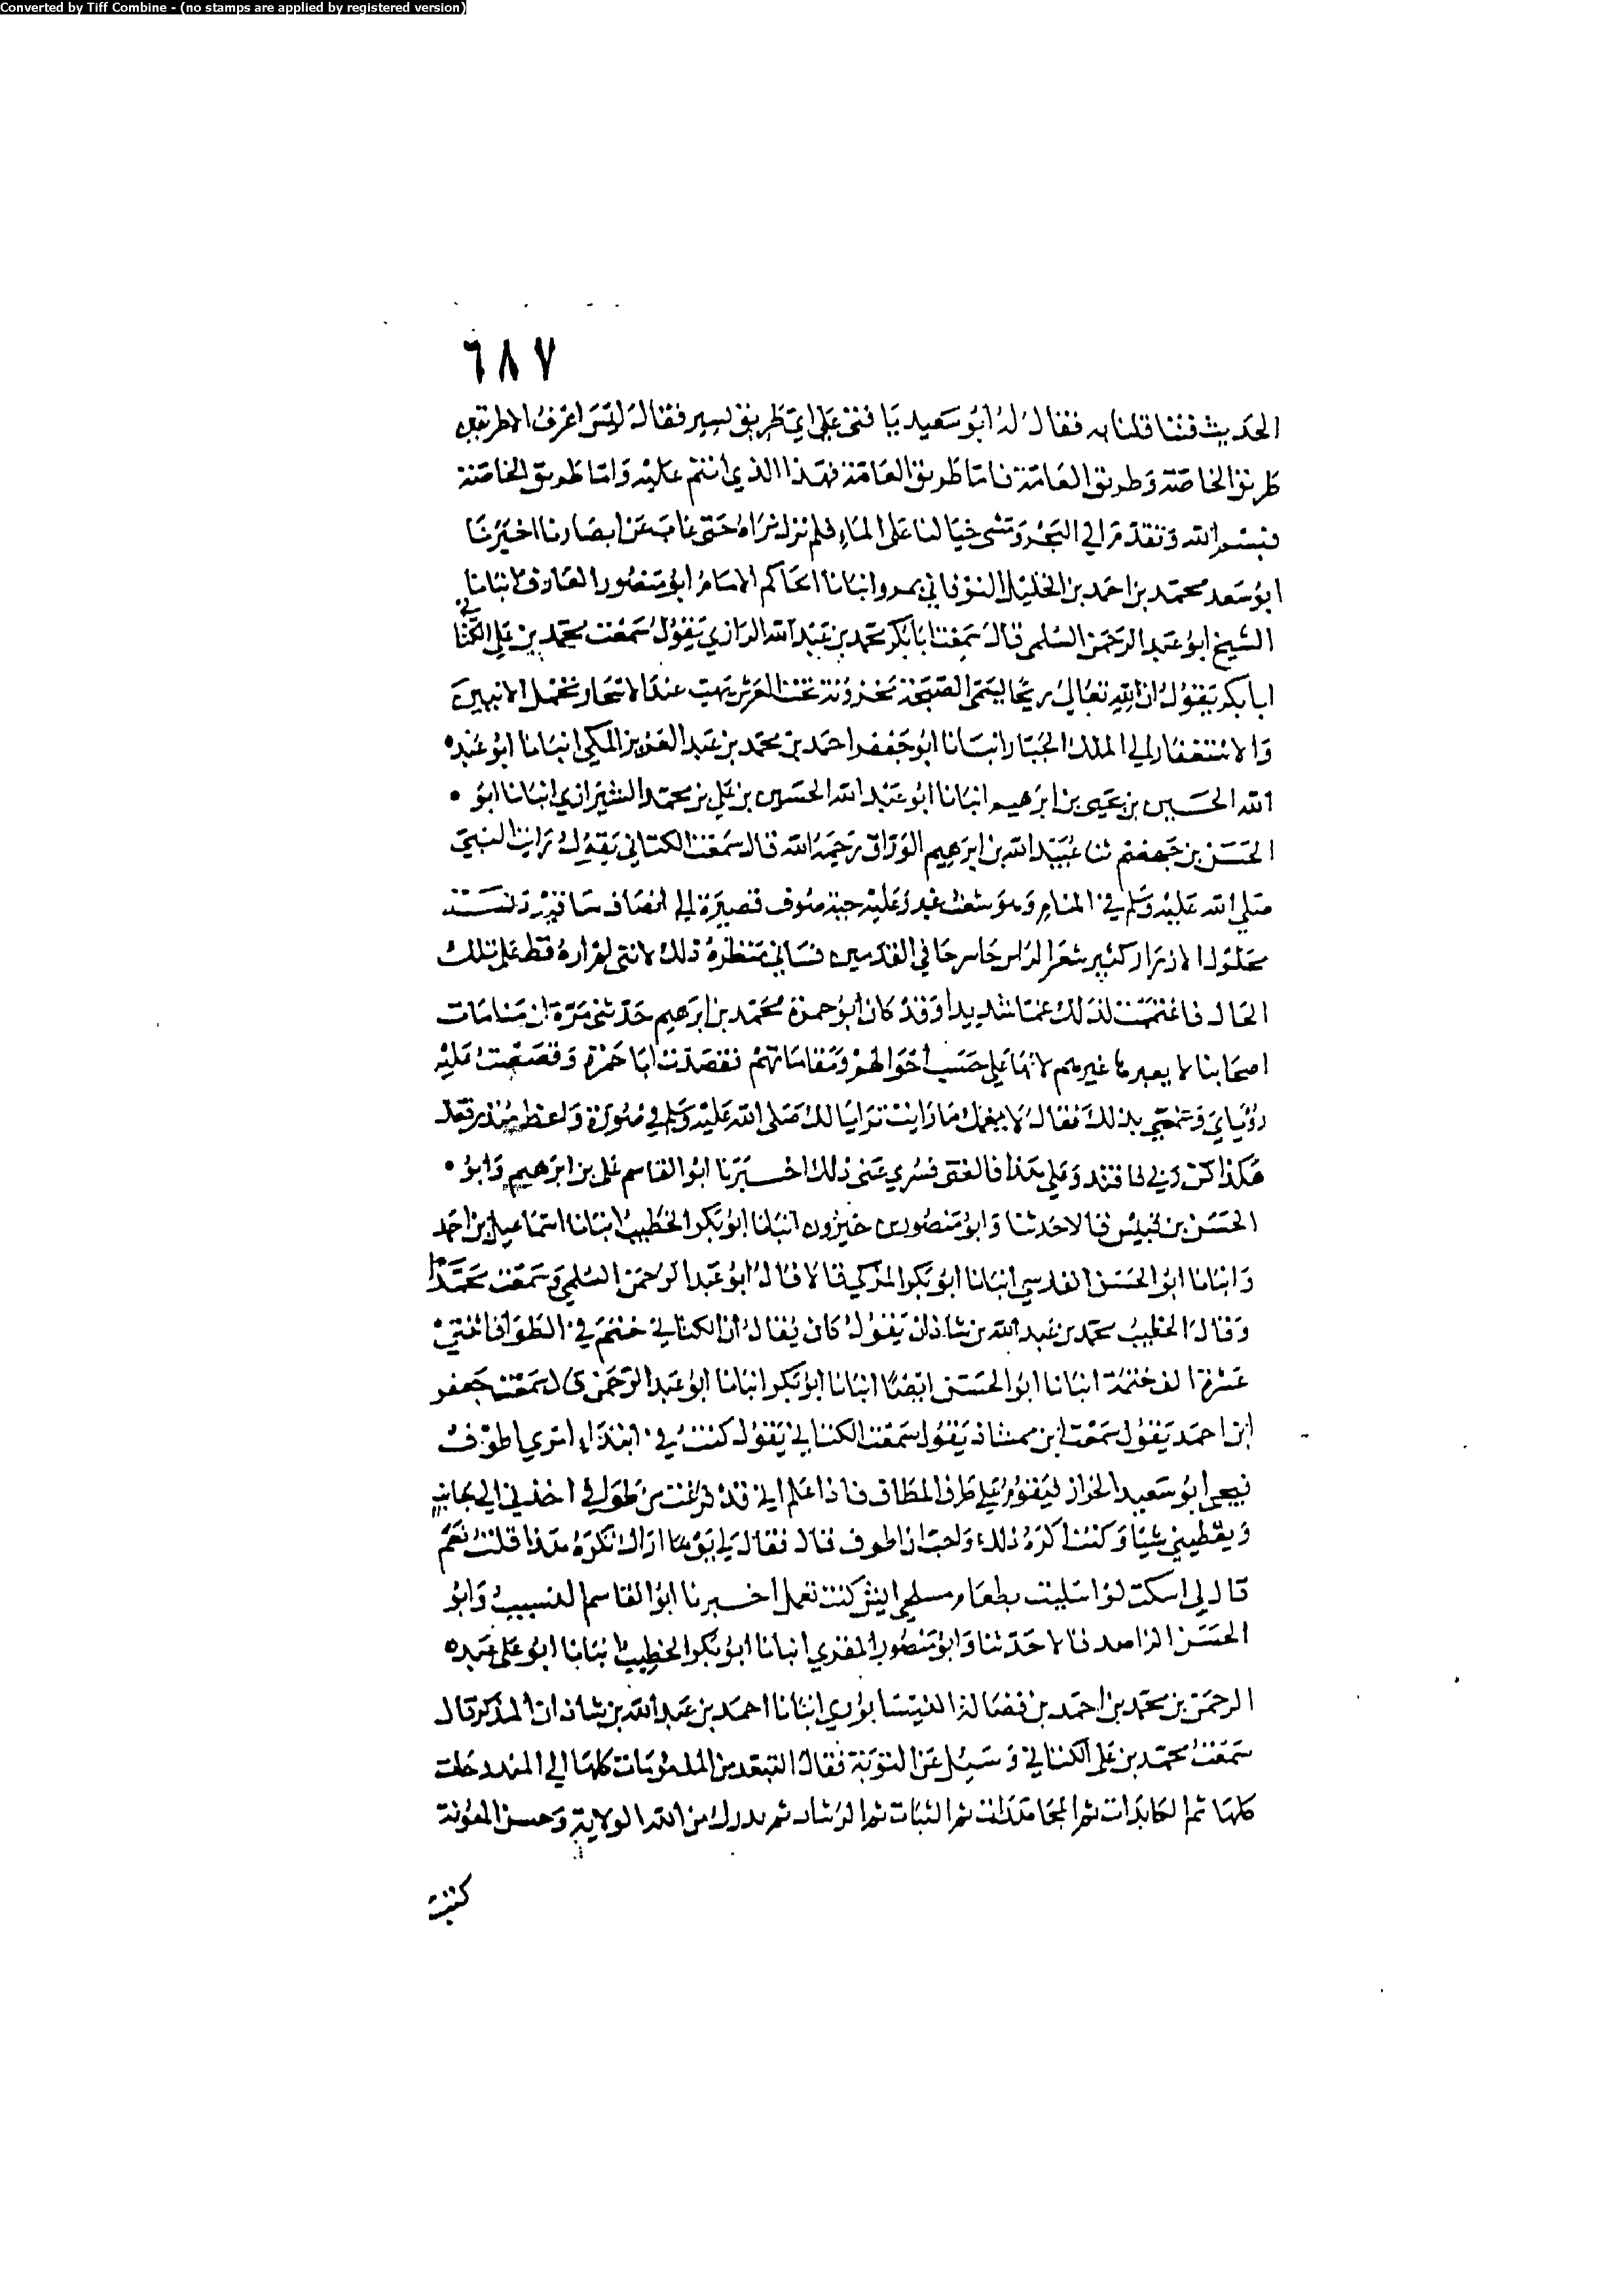 Converted by Tiff Combine - (no stamps are applied by registered version)
٦٨٧
الحديث فقمنا قلنا به فقال له ابو سعيد يا فتى على اي طريق نسير فقال ليس اعرف الا طريقين
طريق الخاصة وطريق العامة فاما طريق العامة فهذا الذي انتم عليه واما طريق الخاصة
فبسم الله وتقدم الى البحر ومشى حيالنا على الماء فلم نزل نراه حتى غاب عن ابصارنا اخبرنا
ابو سعد محمد بن احمد بن الخليل النوقاني بمرو انبانا الحاكم الامام ابو منصور العارف انبانا
الشيخ ابو عبد الرحمن السلمي قال سمعت ابا بكر محمد بن عبد الله الرازي يقول سمعت محمد بن علي الكتاني
ابا بكر يقول ان لله تعالى ريحا يسمى الصبيحة مخزونة تحت العرش تهب عند الاسحار تحمل الانين
والاستغفار الى الملك الجبار انبانا ابو جعفر احمد بن محمد بن عبد العزيز المكي انبانا ابو عبد
الله الحسين بن يحيى بن ابرهيم انبانا ابو عبد الله الحسين بن علي بن محمد الشيرازي انبانا ابو
الحسن بن جهضم ثنا عبيد الله بن ابرهيم الوراق رحمه الله قال سمعت الكتاني يقول رايت النبي
صلى الله عليه وسلم في المنام وهو شعث غبر وعليه جبة صوف قصيرة الى انصاف ساقيه
محلول الازرار كثير شعر الراس حاسر حافي القدمين فساني منظره ذلك لانني لم اره قط على تلك
الحال فاغتممت لذلك غما شديدا وقد كان ابو حمزة محمد بن ابرهيم حدثني مرة ان منامات
اصحابنا لا يعبرها غيرهم لانها على حسب احوالهم ومقاماتهم فقصدت ابا حمزة وقصصت عليه
رؤياي وغمي بذلك فقال لا يغمك ما رايت تراءا لك صلى الله عليه وسلم في صورة واعظ منذر
هكذا كن وبي فاقتد وعلي هذا فالقني فسري عني ذلك اخبرنا ابو القاسم علي بن ابرهيم وابو
الحسن بن قبيس قالا حدثنا وابو منصور بن خيرون انبانا ابو بكر الخطيب انبانا اسماعيل بن احمد
وانبانا ابو الحسن الفارسي انبانا ابو بكر المزكي قالا قال ابو عبد الرحمن السلمي وسمعت محمدا
وقال الخطيب محمد بن عبد الله بن شاذان يقول كان يقال ان الكتاني ختم في الطواف اثنتي
عشرة الف ختمة انبانا ابو الحسن ايضا انبانا ابو بكر انبانا ابو عبد الرحمن قال سمعت جعفر
ابن احمد يقول سمعت ابن ممشاذ يقول سمعت الكتاني يقول كنت في ابتداء امري اطوف
فيجي ابو سعيد الخراز فيقوم على طرف المطاف فاذا علم اني قد فرغت من طوافي اخذني الى جانب
ويعطيني شيا وكنت اكره ذلك واحب ان اطوف قال فقال لي يوما اراك تكره هذا قلت نعم
قال لي اسكت لو ابتليت بطعام مسلمي ايش كنت تعمل اخبرنا ابو القاسم النسيب وابو
الحسن الزاهد قالا حدثنا وابو منصور المقري انبانا ابو بكر الخطيب انبانا ابو علي عبد
الرحمن بن محمد بن احمد بن فضالة النيسابوري انبانا احمد بن عبد الله بن شاذان المذكر قال
سمعت محمد بن علي الكتاني وسئل عن التوبة فقال التبعد من المذمومات كلها الى الممدوحات
كلها ثم المكابدات ثم المجاهدات ثم الثبات ثم الرشاد ثم يدرك من الله الولاية وحسن المعونة
كتبت